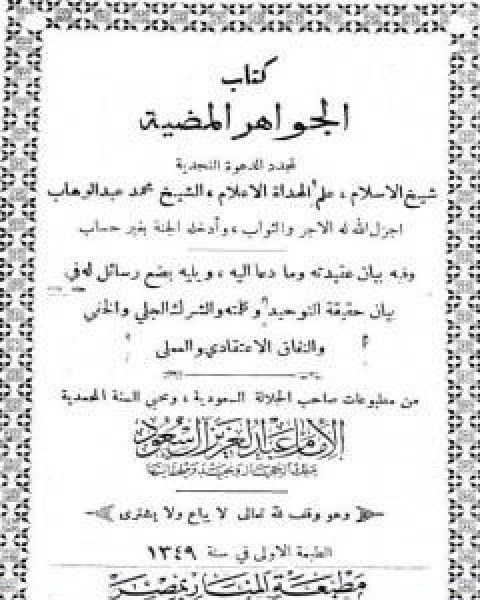 كتاب
الجواهر المضية
لمجدد الدعوة النجدية
شيخ الاسلام، علم الهداة الاعلام، الشيخ محمد عبد الوهاب
اجزل الله له الاجر والثواب، وأدخله الجنة بغير حساب
وفيه بيان عقيدته وما دعا اليه، ويليه بضع رسائل له في
بيان حقيقة التوحيد وكلمته والشرك الجلي والخفي
والنفاق الاعتقادي والعملي
من مطبوعات صاحب الجلالة السعودية، ومحيي السنة المحمدية
الإمام عبد العزيز آل السعود
ملك الحجاز ونجد وملحقاتها
وهو وقف لله تعالى لا يباع ولا يشترى
الطبعة الاولى في سنة ١٣٤٩
مطبعة المنار بمصر